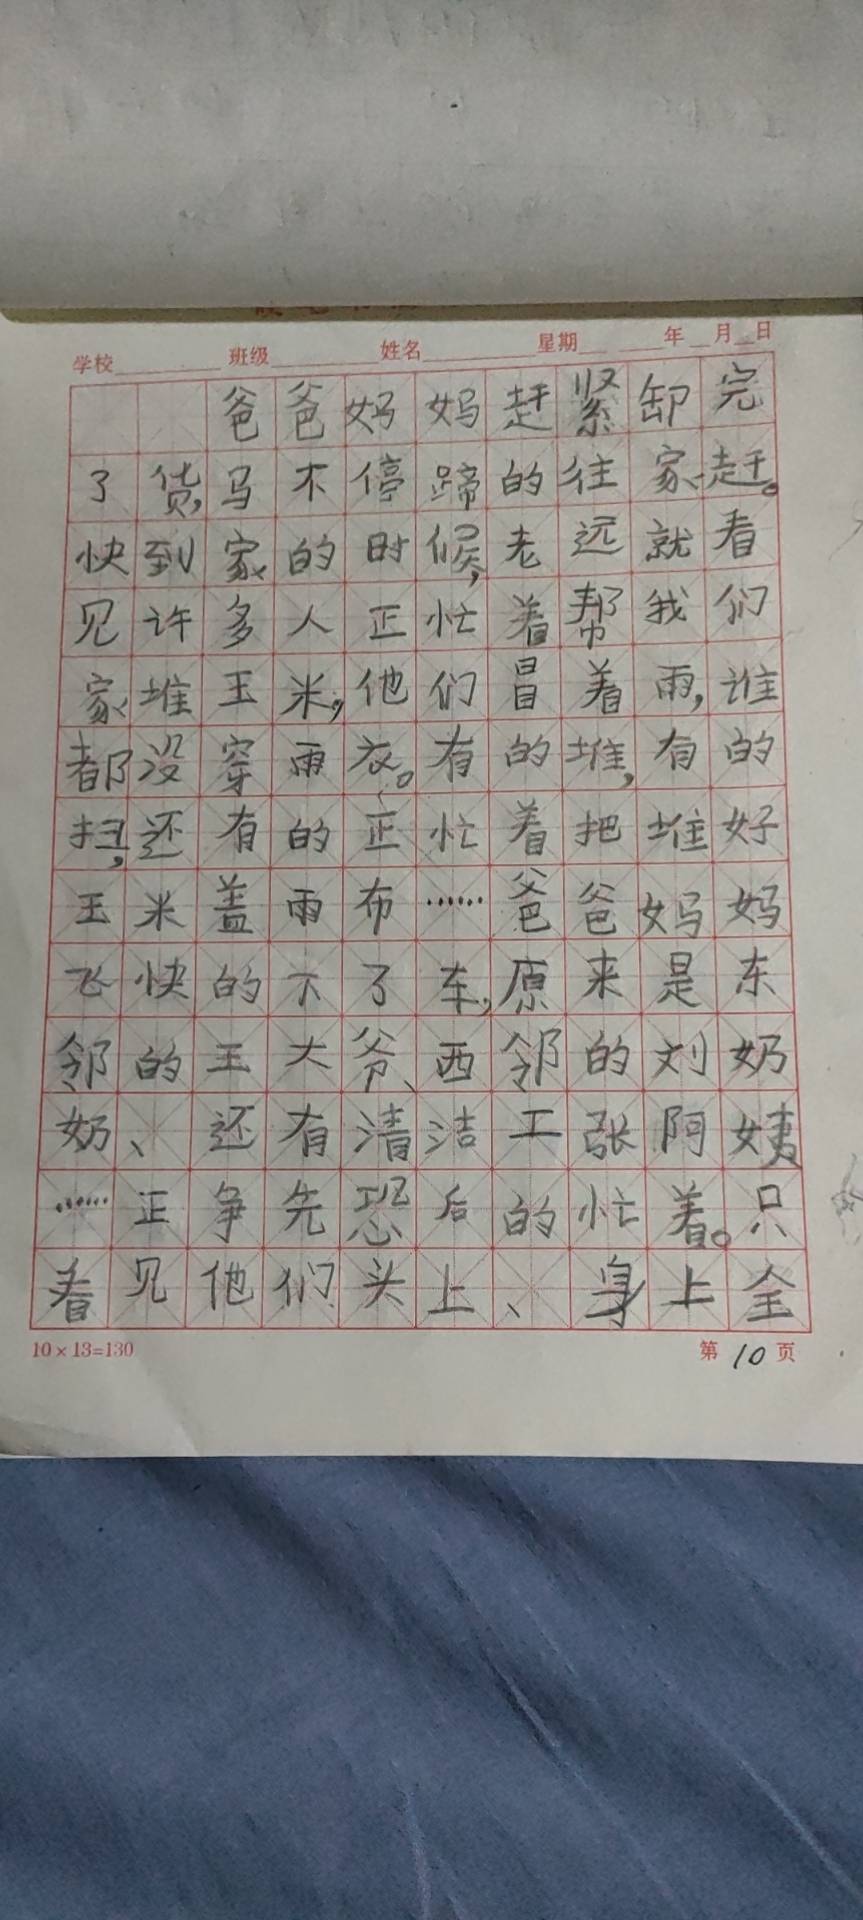 学校 班级 姓名 星期 年 月 日
爸爸妈妈赶紧卸完
了货,马不停蹄的往家赶。
快到家的时候,老远就看
见许多人正忙着帮我们
家堆玉米,他们冒着雨,谁
都没穿雨衣。有的堆,有的
扫,还有的正忙着把堆好
玉米盖雨布……爸爸妈妈
飞快的下了车,原来是东
邻的王大爷、西邻的刘奶
奶、还有清洁工张阿姨
……正争先恐后的忙着。只
看见他们头上、身上全
10×13=130 第10页